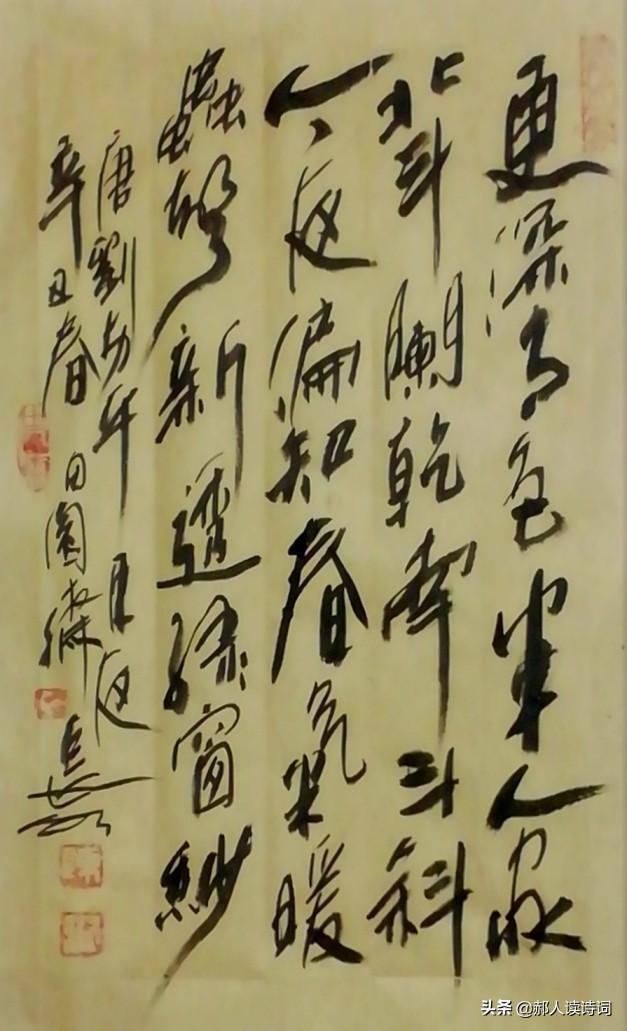 更深月色半人家
北斗闌乾南斗斜
今夜偏知春氣暖
蟲聲新透綠窗紗
唐劉方平 月夜
辛丑春 田園齋
头条 @郝人读诗词